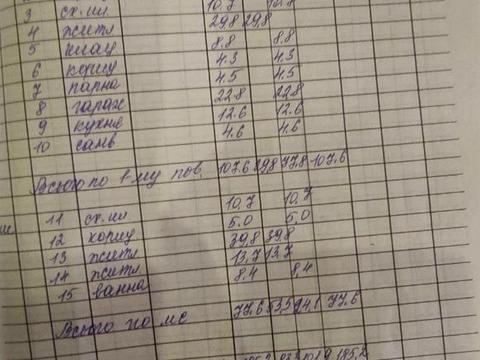 3 сх. кл 10.7 10.7
4 житл 29,8 29,8
5 клад 8.8 8.8
6 корид 4.3 4.3
7 парна 4.5 4.5
8 гараж 22.8 22.8
9 кухня 12.6 12.6
10 санв 4.6 4.6
Всього по 1-му пов. 107.6 29,8 77,8 107.6
11 сх. кл 10,7 10,7
12 корид 5.0 5.0
13 житл 39,8 39,8
14 житл 13,7 13,7
15 ванна 8,4 8,4
Всього по мс 77,6 53,5 24,1 77,6
185,2